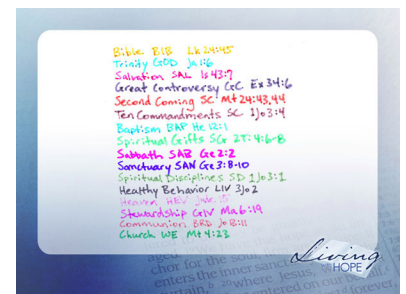 Bible BIB Lk 24:45
Trinity GOD Ja 1:6
Salvation SAL Is 43:7
Great Controversy GC Ex 34:6
Second Coming SC Mt 24:43,44
Ten Commandments SC 1Jo 3:4
Baptism BAP He 12:1
Spiritual Gifts SG 2T: 4:6-8
Sabbath SAB Ge 2:2
Sanctuary SAN Ge 3:8-10
Spiritual Disciplines SD 1Jo 3:1
Healthy Behavior LIV 3Jo 2
Heaven HEV
Stewardship GIV Ma 6:19
Communion BRD Jo 8:11
Church WE Mt 4:23
Living
HOPE
chor for the soul,
enters the inner sanc
20 where Jesus,
entered on our